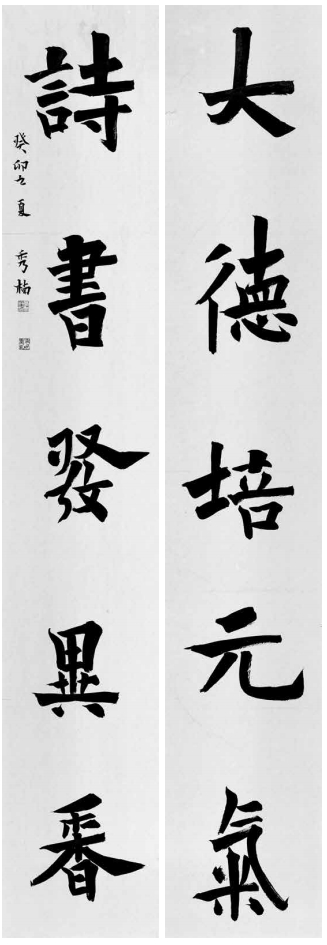 大德培元氣
詩書發異香
癸卯夏 秀楠